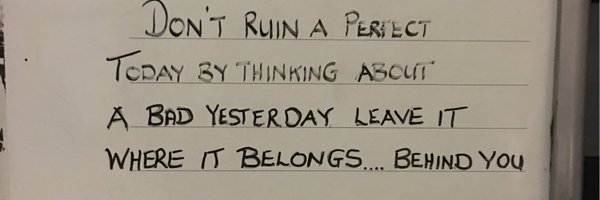 DON'T RUIN A PERFECT
TODAY BY THINKING ABOUT
A BAD YESTERDAY LEAVE IT
WHERE IT BELONGS.... BEHIND YOU